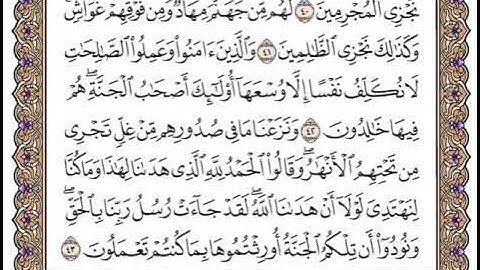 نَجْزِي الْمُجْرِمِينَ ٤٠ لَهُم مِّن جَهَنَّمَ مِهَادٌ وَمِن فَوْقِهِمْ غَوَاشٍ
وَكَذَٰلِكَ نَجْزِي الظَّالِمِينَ ٤١ وَالَّذِينَ ءَامَنُوا وَعَمِلُوا الصَّالِحَاتِ
لَا نُكَلِّفُ نَفْسًا إِلَّا وُسْعَهَا أُولَٰئِكَ أَصْحَابُ الْجَنَّةِ ۖ هُمْ
فِيهَا خَالِدُونَ ٤٢ وَنَزَعْنَا مَا فِي صُدُورِهِم مِّنْ غِلٍّ تَجْرِي
مِن تَحْتِهِمُ الْأَنْهَارُ ۖ وَقَالُوا الْحَمْدُ لِلَّهِ الَّذِي هَدَىٰنَا لِهَٰذَا وَمَا كُنَّا
لِنَهْتَدِيَ لَوْلَا أَنْ هَدَىٰنَا اللَّهُ ۖ لَقَدْ جَاءَتْ رُسُلُ رَبِّنَا بِالْحَقِّ ۖ
وَنُودُوا أَن تِلْكُمُ الْجَنَّةُ أُورِثْتُمُوهَا بِمَا كُنتُمْ تَعْمَلُونَ ٤٣